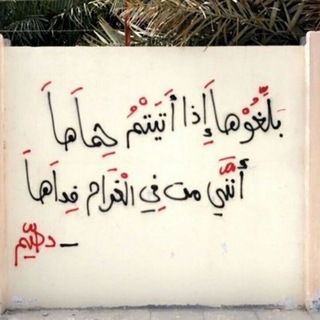 بَلِّغُوْهَا إِذَا أَتَيْتُمْ حِمَاهَا
أَنَّنِي مت فِي الْغَرَامِ فِدَاهَا